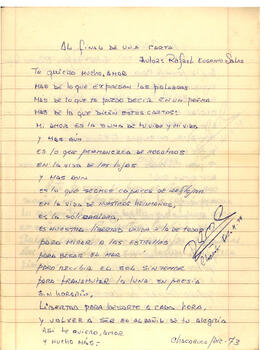 AL FINAL DE UNA CARTA
Autor: Rafael Eugenio Salas
Te quiero mucho, amor
MAS DE lo que EXPRESAN las palabras
MAS DE lo que TE puedo DECIR EN UN poema
MAS DE lo que DICEN ESTAS CARTAS:
MI AMOR ES LA SUMA DE MI VIDA y
y MAS AUN
ES lo que permanecerá DE NOSOTROS
EN LA VIDA DE LOS HIJOS
y MAS AUN
ES lo que SEAMOS CAPACES DE
EN LA VIDA DE NUESTROS HERMANOS,
ES LA SOLIDARIDAD,
ES NUESTRA LIBERTAD UNIDA A LA DE TODOS
PARA MIRAR A LAS ESTRELLAS
PARA BESAR EL MAR
PARA RECIBIR EL SOL SIN TEMOR
PARA TRANSMUTAR LA LUNA EN POESIA
SIN HORARIO,
LIBERTAD PARA A CADA HORA,
Y VOLVER A SER EL ALBAÑIL DE TU ALEGRIA
ASI TE QUIERO, AMOR
Y MUCHO MAS.-
Chacabuco / Dic.-73